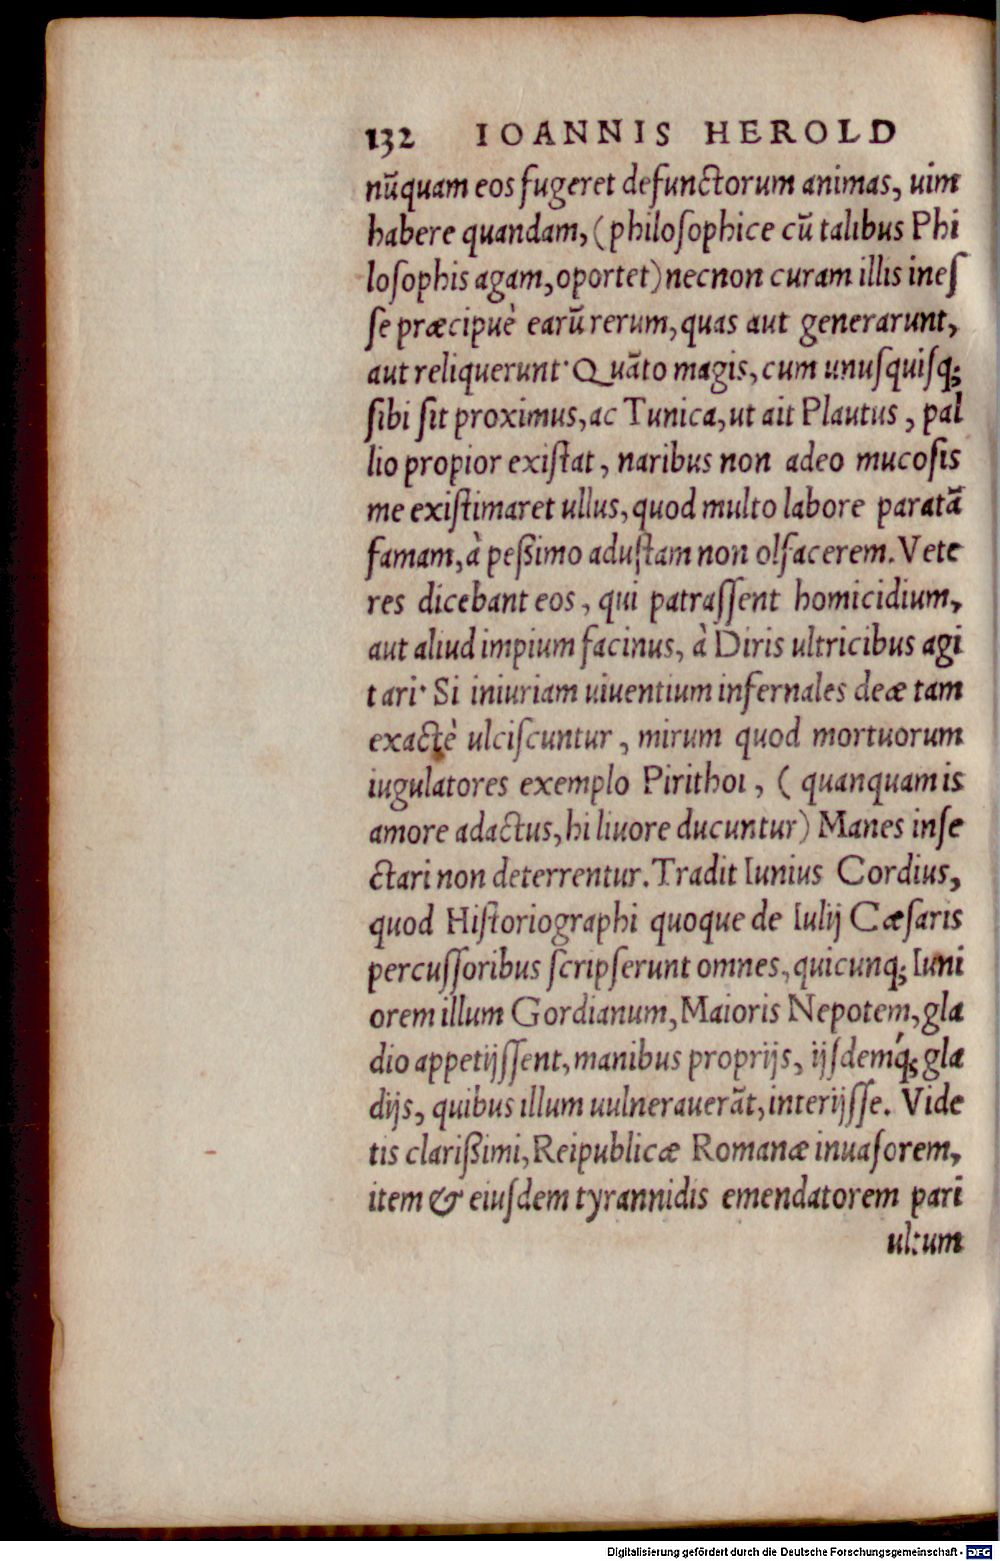 132 IOANNIS HEROLD
nūquam eos fugeret defunctorum animas, uim
habere quandam, (philosophice cū talibus Phi
losophis agam, oportet) necnon curam illis ineſ
ſe præcipuè earū rerum, quas aut generarunt,
aut reliquerunt· Quāto magis, cum unuſquiſq;
ſibi ſit proximus, ac Tunica, ut ait Plautus, pal
lio propior exiſtat, naribus non adeo mucoſis
me exiſtimaret ullus, quod multo labore paratã
famam, à peßimo aduſtam non olfacerem. Vete
res dicebant eos, qui patraſſent homicidium,
aut aliud impium facinus, à Diris ultricibus agi
tari· Si iniuriam uiuentium infernales deæ tam
exactè ulciſcuntur, mirum quod mortuorum
iugulatores exemplo Pirithoi, (quanquam is
amore adactus, hi liuore ducuntur) Manes inſe
ctari non deterrentur. Tradit Iunius Cordius,
quod Hiſtoriographi quoque de Iulij Cæſaris
percuſſoribus ſcripſerunt omnes, quicunq; Iuni
orem illum Gordianum, Maioris Nepotem, gla
dio appetijſſent, manibus proprijs, ijſdemq́; gla
dijs, quibus illum uulnerauerãt, interijſſe. Vide
tis clarißimi, Reipublicæ Romanæ inuaſorem,
item & eiuſdem tyrannidis emendatorem pari
ultum
Digitalisierung gefördert durch die Deutsche Forschungsgemeinschaft - DFG